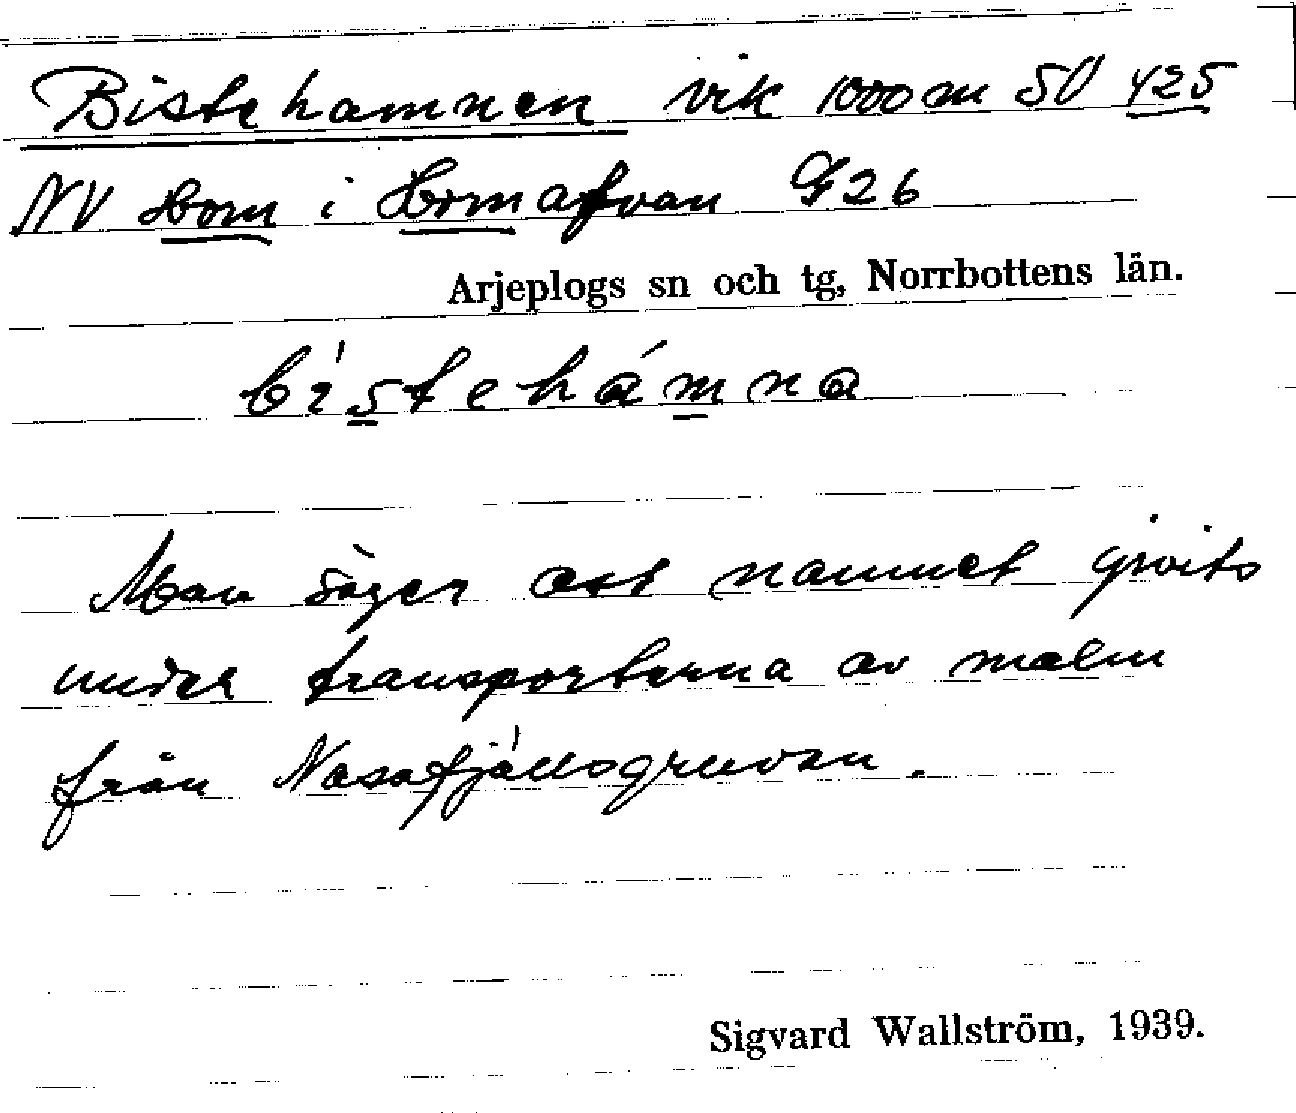 Bistehamnen vik 1000 m SV 425
NV Horn i Hornafvan G26
Arjeplogs sn och tg, Norrbottens län.
bìstehámna
Man säger att namnet givits
under transporterna av malm
från Nasafjällsgruvan.
Sigvard Wallström, 1939.